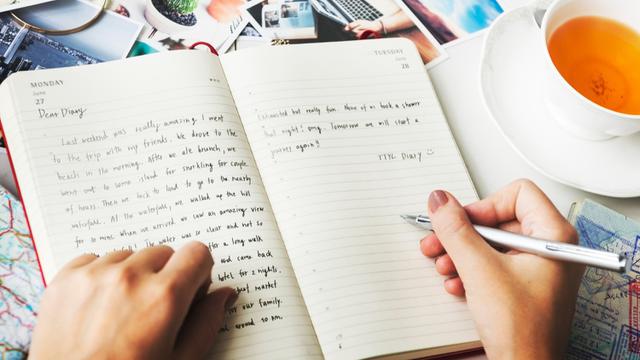 MONDAY
June
27
Dear Diary
Last weekend was really amazing. I went
to the trip with my friends. We drove to the
beach in the morning. After we ate brunch, we
went out to some island for snorkling for couple
of hours. Then we back to land to go to the nearby
waterfalls. At the waterfalls, we walked up the hill
for 30 mins when we arrived we saw an amazing view
The water was so clear and not so
a long walk
and came back
hotel for 2 nights.
market
for our family.
around 10 pm.
TUESDAY
June
28
Exhausted but really fun. None of us took a shower
that night! omg. Tomorrow we will start a
journey again!!
TTYL Diary